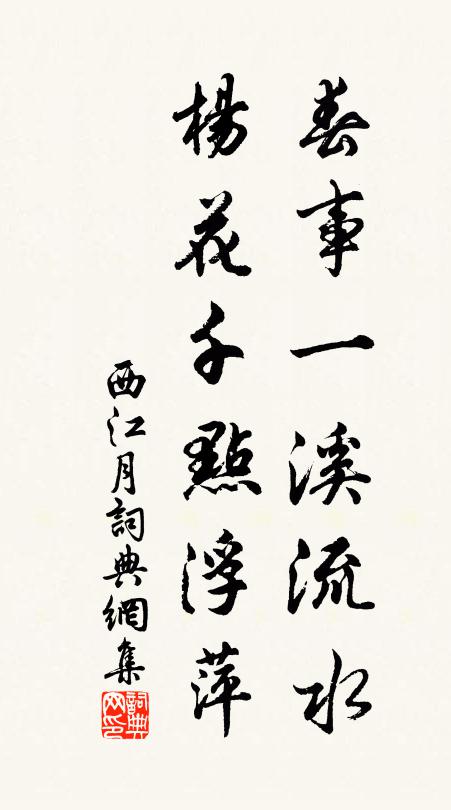 春事一溪流水
楊花千點浮萍
西江月詞典網集
詞典网印